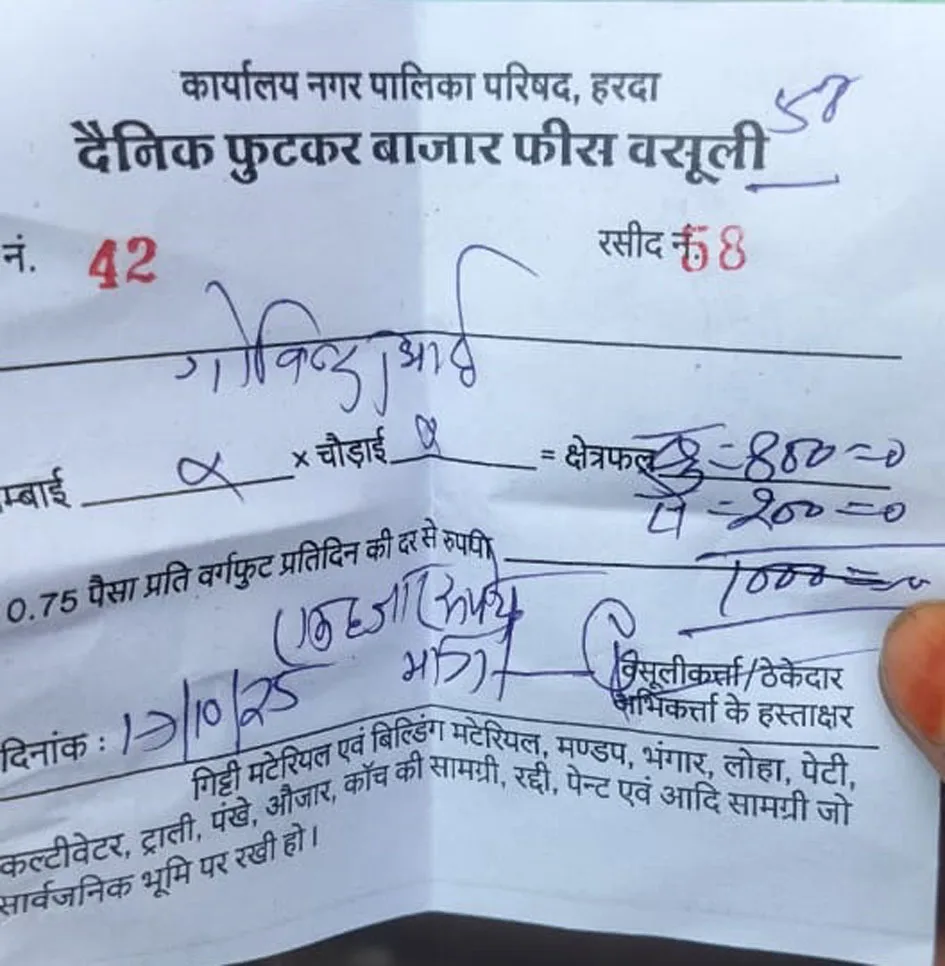 कार्यालय नगर पालिका परिषद, हरदा
58
दैनिक फुटकर बाजार फीस वसूली
नं. 42 रसीद नं. 58
गोविन्द भाई
म्बाई × चौड़ाई = क्षेत्रफल = 800=0
= 200=0
0.75 पैसा प्रति वर्गफुट प्रतिदिन की दर से रुपयी 1000=0
एक हजार रूपये
मात्र
वसूलीकर्त्ता/ठेकेदार
अभिकर्त्ता के हस्ताक्षर
दिनांक : 17/10/25
गिट्टी मटेरियल एवं बिल्डिंग मटेरियल, मण्डप, भंगार, लोहा, पेटी,
कल्टीवेटर, ट्राली, पंखे, औजार, कॉच की सामग्री, रद्दी, पेन्ट एवं आदि सामग्री जो
सार्वजनिक भूमि पर रखी हो।